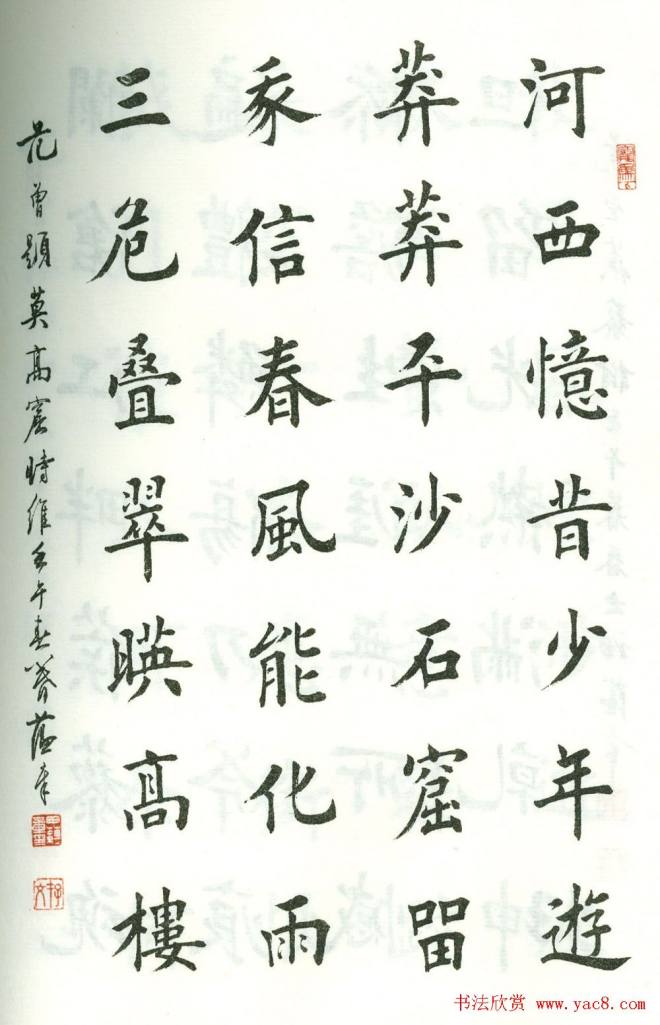 河西憶昔少年遊
莽莽平沙石窟畱
豖信春風能化雨
三危疊翠暎高樓
范曾題莫高窟時維壬午春
书法欣赏 www.yac8.com